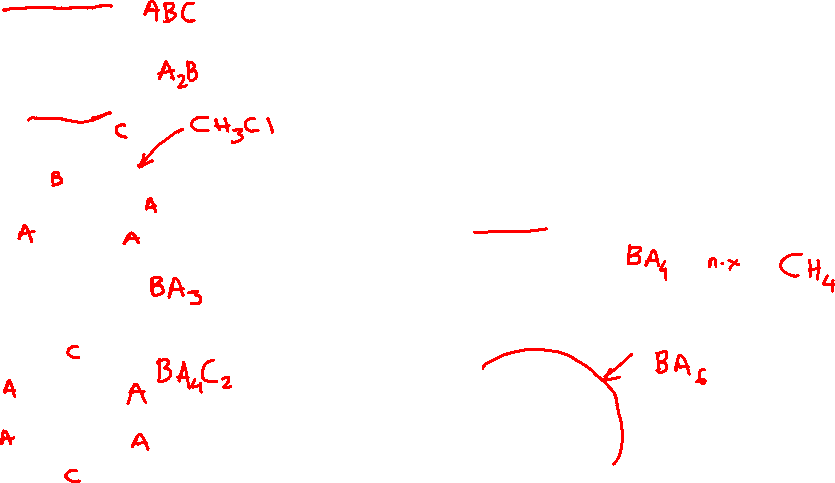 ABC
A₂B
C CH₃Cl
B
A
A A
BA₃
C
BA₄C₂
A A
A A
C
BA₄ n.x CH₄
BA₆